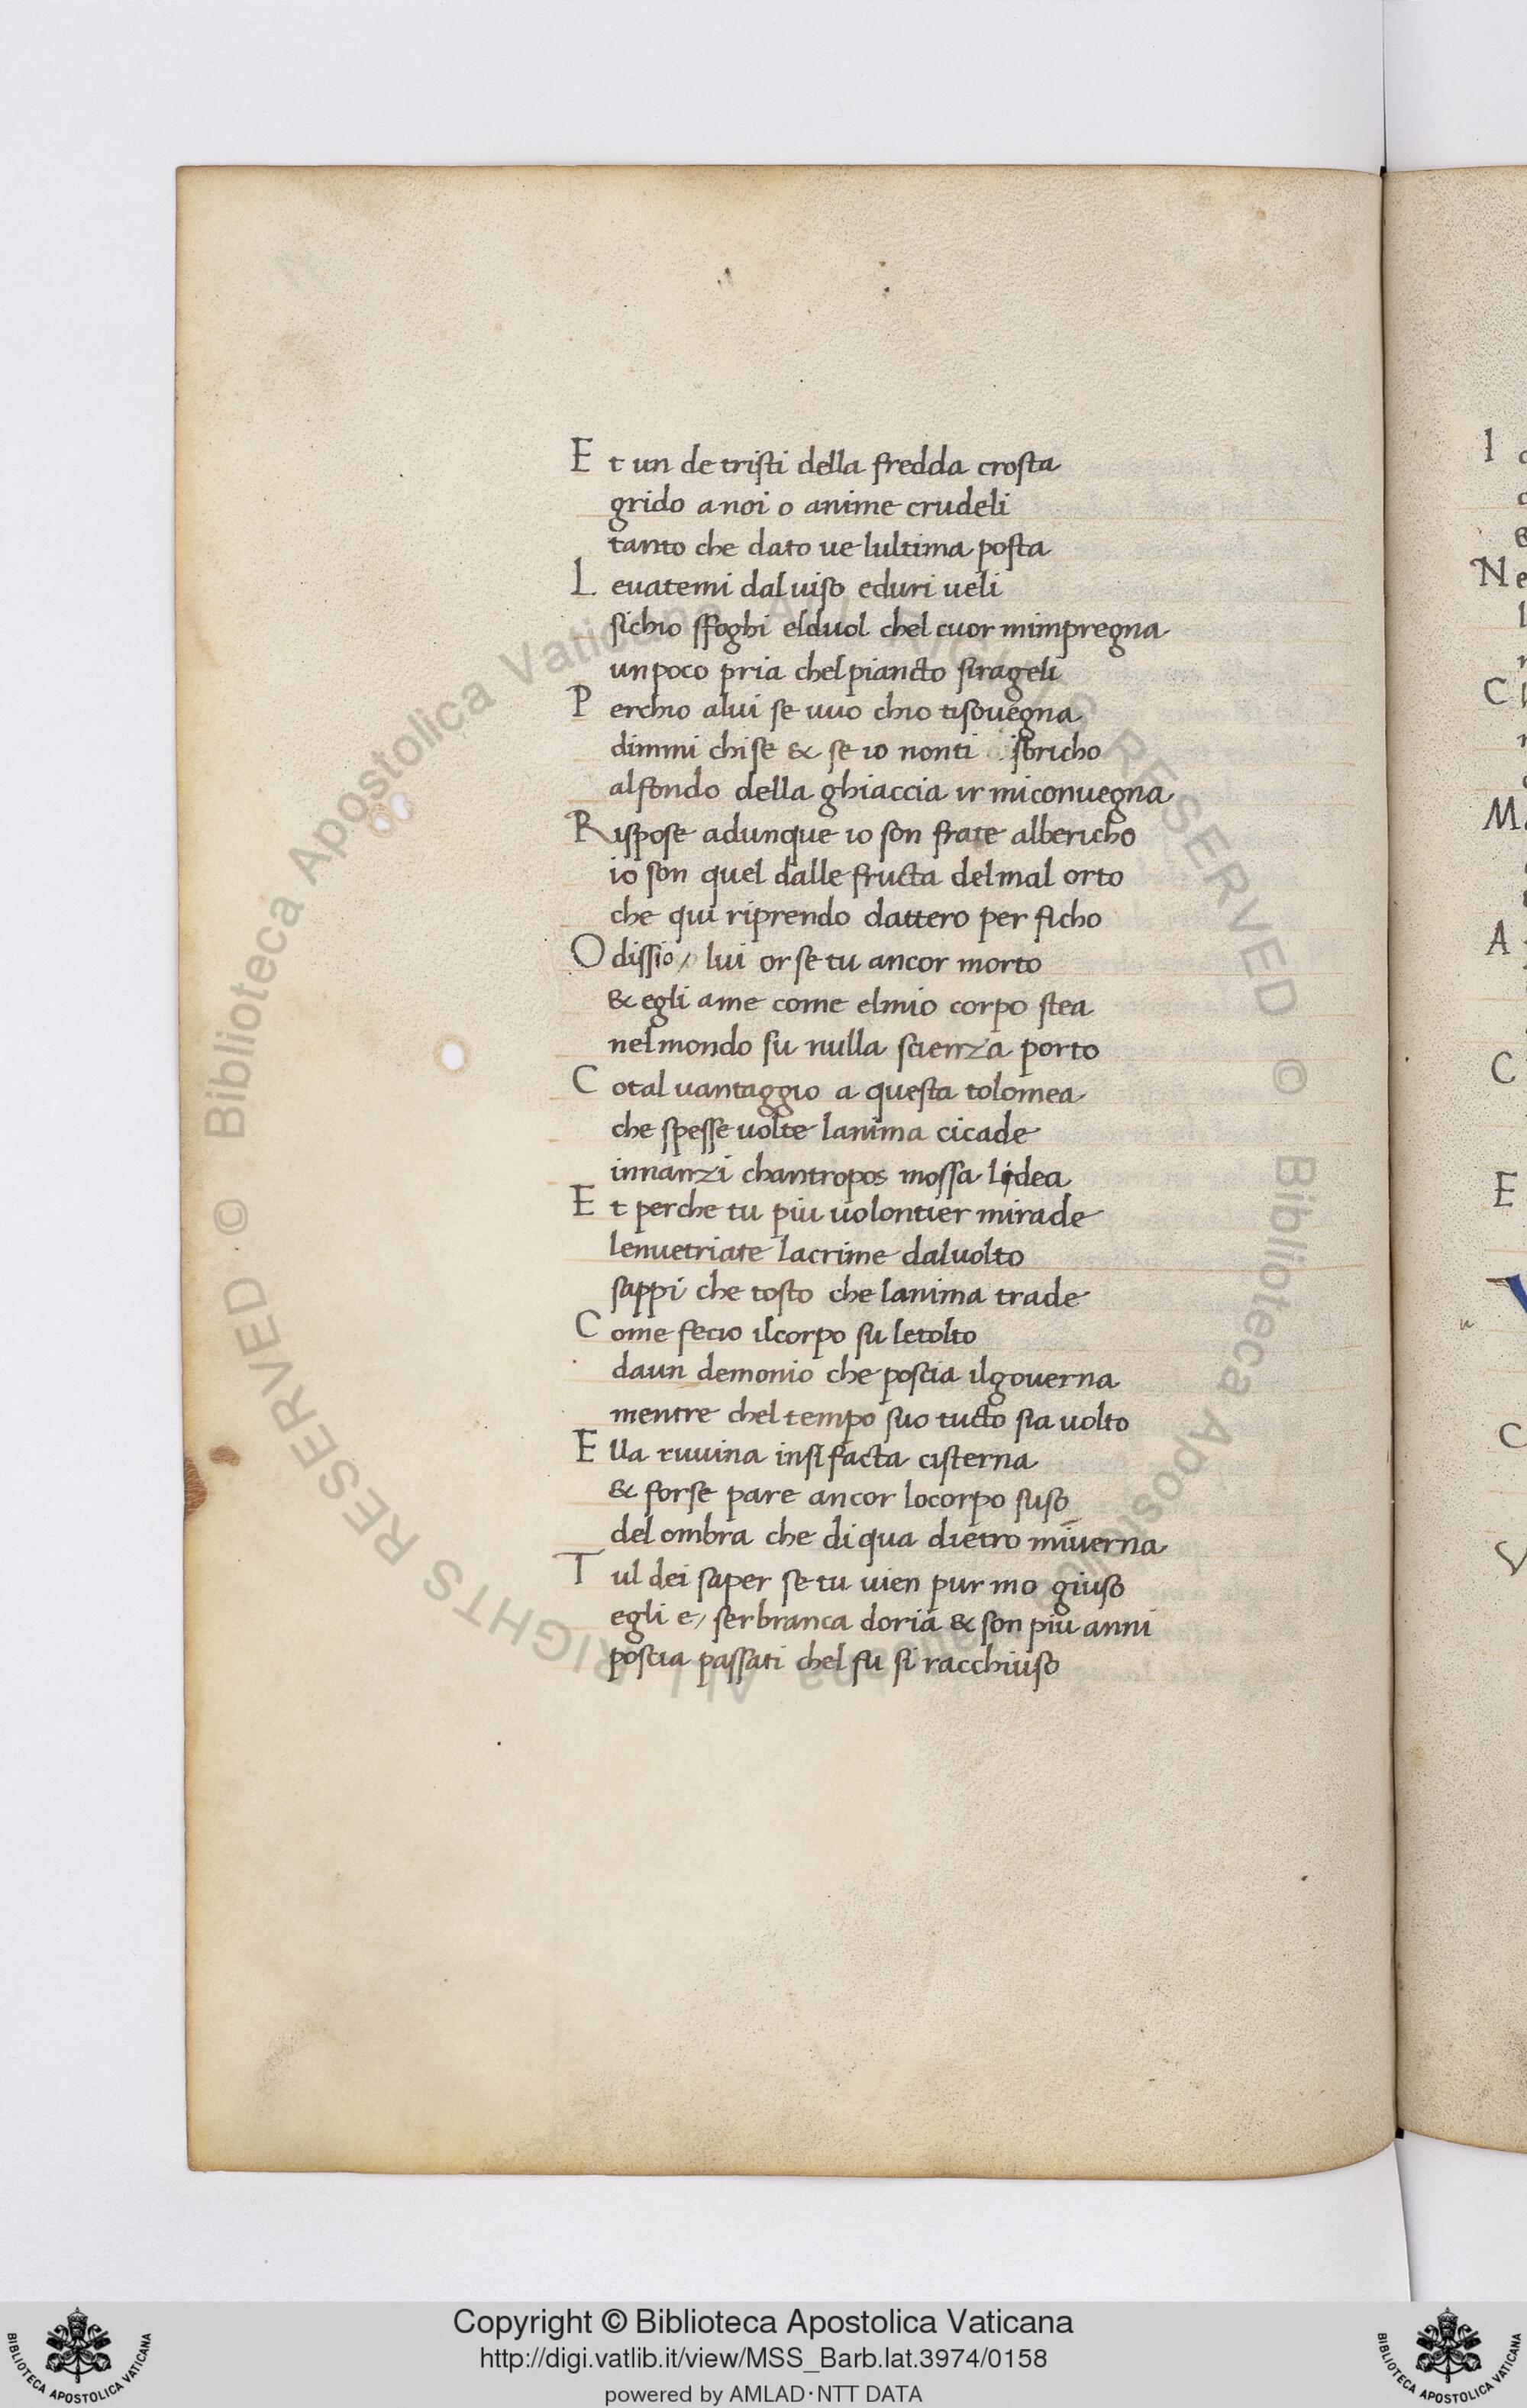 Et un de tristi della fredda crosta
grido anoi o anime crudeli
tanto che dato ue lultima posta
Leuatemi dal uiso eduri ueli
sichio sfoghi elduol chel cuor mimpregna
unpoco pria chelpiancto sirageli
Perchio alui se uuo chio tisouegna
dimmi chise & se io nonti isbricho
alfondo della ghiaccia ir miconuegna
Rispose adunque io son frate albericho
io son quel dalle fructa delmal orto
che qui riprendo dattero per ficho
O dissio lui or se tu ancor morto
& egli ame come elmio corpo stea
nelmondo su nulla scienza porto
Cotal uantaggio a questa tolomea
che spesse uolte lanima cicade
innanzi chantropos mossa lidea
Et perche tu piu uolontier mirade
lenuetriate lacrime daluolto
sappi che tosto che lanima trade
Come fecio ilcorpo su letolto
daun demonio che poscia ilgouerna
mentre chel tempo suo tucto sia uolto
Ella ruuina insi facta cisterna
& forse pare ancor locorpo suso
del ombra che di qua dietro miuerna
Tul dei saper se tu uien pur mo giuso
egli e, ser branca doria & son piu anni
poscia passati chel fu si racchiuso
I
Ne
C
M
A
C
E
C
Copyright © Biblioteca Apostolica Vaticana
http://digi.vatlib.it/view/MSS_Barb.lat.3974/0158
powered by AMLAD·NTT DATA
BIBLIOTECA APOSTOLICA VATICANA
BIBLIOTECA APOSTOLICA VATICANA
© Biblioteca Apostolica Vaticana ALL RIGHTS RESERVED © Biblioteca Apostolica Vaticana ALL RIGHTS RESERVED